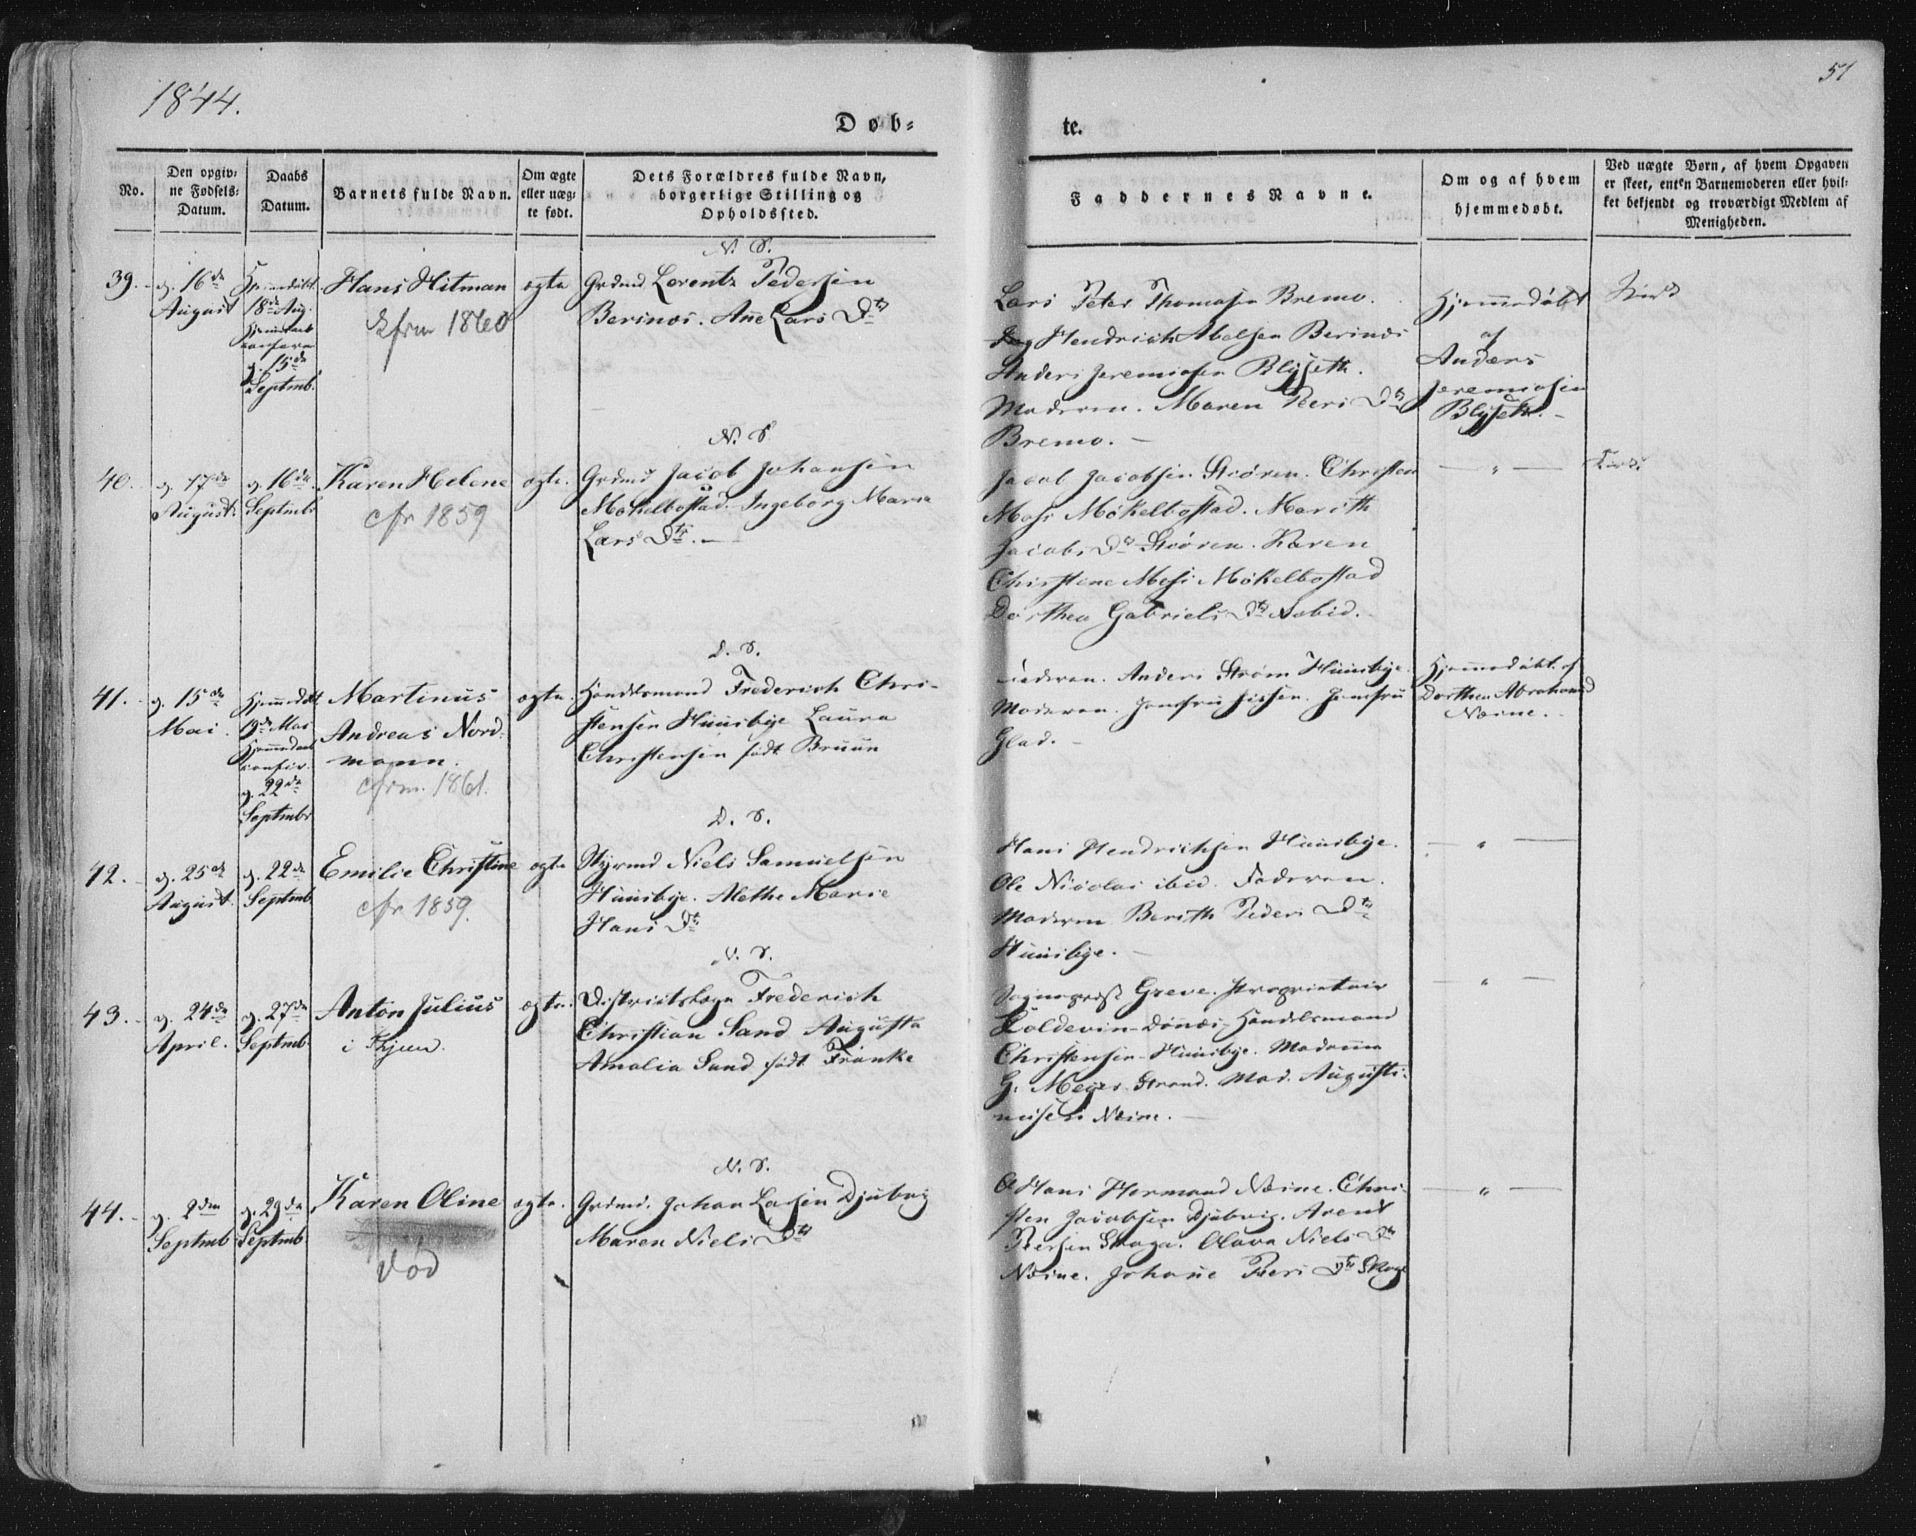 1844.
51
Døb-
te.
No.
Den opgiv-
ne Fødsels-
Datum.
Daabs
Datum.
Barnets fulde Navn.
Om ægte
eller uæg-
te født.
Dets Forældres fulde Navn,
borgerlige Stilling og
Opholdssted.
Faddernes Navne.
Om og af hvem
hjemmedøbt.
Ved uægte Børn, af hvem Opgaven
er skeet, enten Barnemoderen eller hvil-
ket bekjendt og troværdigt Medlem af
Menigheden.
N. S.
39.
d. 16de
August
Hjemmedøbt
18de Aug.
d. 15de
Septmb.
Hans Hitman
1860
ægte
Grdmd Lorentz Pedersen
Berinæs. Ane Lars Dtr
Lars Peter Thomasen Bremo.
Hendrich Abelsen Berinæs
Anders Jeremiasen Blyseth.
Moderen. Maren Peers Dtr
Bremo. -
Hjemmedøbt
af
Anders
Jeremiasen
Blyseth. -
N. S.
40.
d. 17de
August.
d. 16de
Septmbr
Karen Helene
cfr 1859
ægte.
Grdmd Jacob Johansen
Møkelbostad. Ingeborg Maria
Lars Dtr. -
Jacob Jacobsen Skiøren. Christen
Moss Møkelbostad. Marith
Jacobs Dtr Skiøren. Karen
Christine Moss Møkelbostad
Dorthea Gabriels Dtr Næbid.
— " —
D. S.
41.
d. 15de
Mai.
Hjemmedøbt
19de Mai
d. 22de
Septmbr
Martinus
Andreas Nord-
mann.
cfrm. 1861.
ægte.
Handelsmand Frederich Chri-
stensen Huusbye Laura
Christensen født Bruun
Faderen. Anders Strøm Huusbye.
Moderen. Jomfru Jessen. Jomfru
Glad. -
Hjemmedøbt af
Dorthea Abrahams
Næsne. -
D. S.
42.
d. 25de
August.
d. 22de
Septmb
Emilie Christine
cfr 1859.
ægte
Styrmd Niels Samuelsen
Huusbye. Alethe Marie
Hans Dtr
Hans Hendrichsen Huusbye.
Ole Nicolai ibid. Faderen.
Moderen Berith Peders Dtr
Huusbye. -
— " —
N. S.
43.
d. 24de
April.
d. 27de
Septmb.
Anton Julius
ægte.
Districtslæge Frederich
Christian Sand Augusta
Amalia Sand født Franke
Sogneprest Greve. Proprietair
Coldevin Dønnæs. Handelsmand
Christensen Huusbye. Madame
G. Meyer Strand. Mad. Augusti-
nusen Næsne. -
— " —
N. S.
44.
d. 2den
Septmb
d. 29de
Septmb
Karen Oline
død
ægte.
Grdmd. Johan Larsen Djubvig
Maren Niels Dtr
Hans Hermand Næsne. Chri-
sten Jacobsen Djubvig. Arent
Peersen Skaga. Olava Niels Dtr
Næsne. Johanne Peers Dtr Skage
— " —